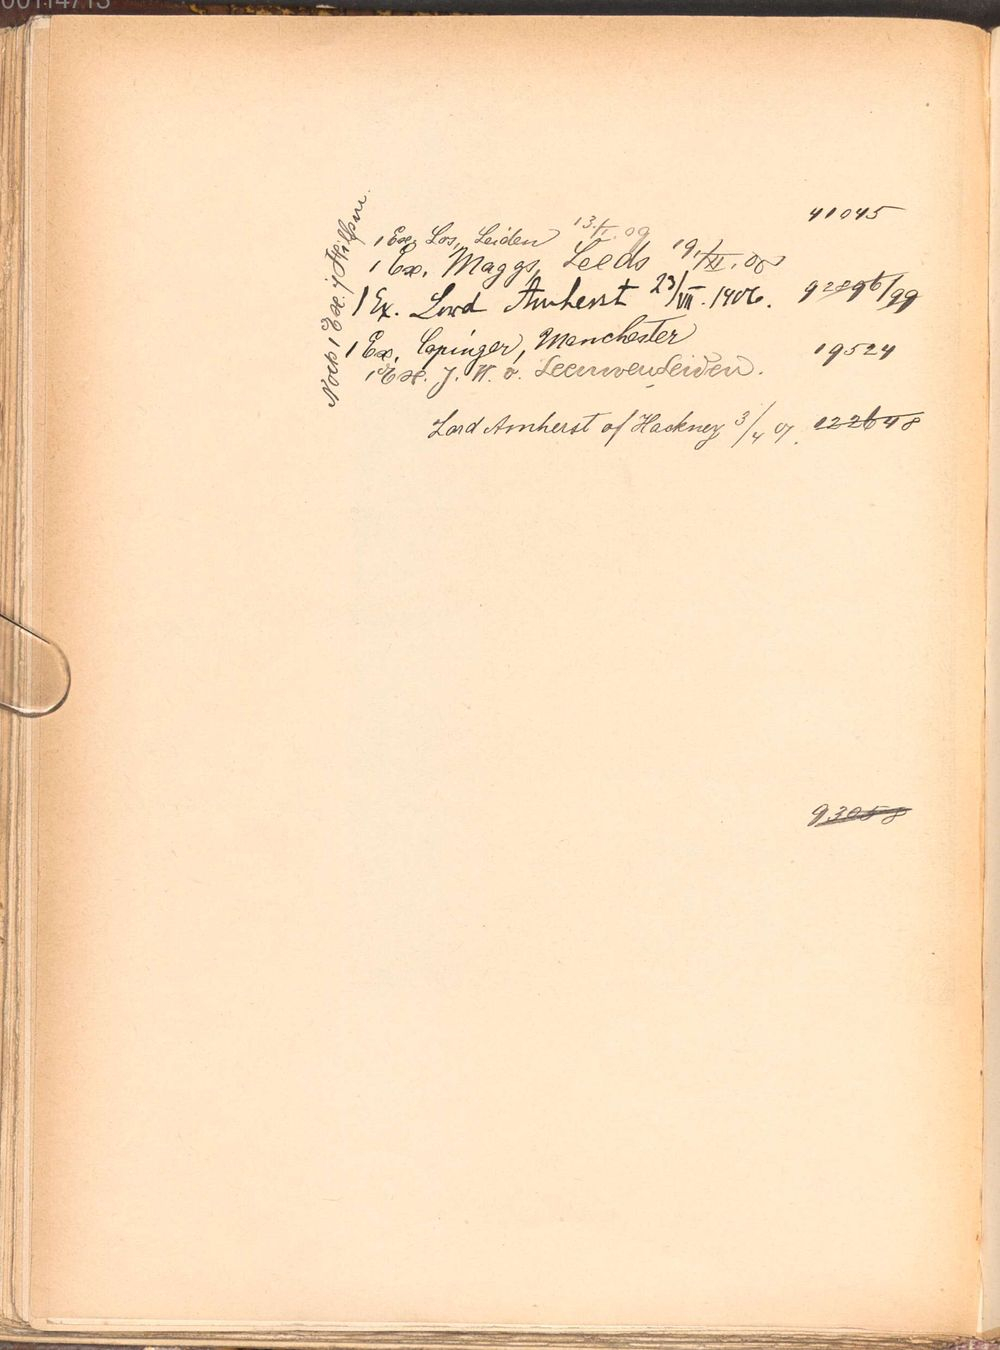 00114713
41045
1 Ex. Los, Leiden 13/I. 09
1 Ex. Maggs, Leeds 19/XI. 08
1 Ex. Lord Amherst 23/VII. 1906. 92896/99
1 Ex. Copinger, Manchester 19524
1 Ex. J. W. v. Leeuwen Leiden.
Lord Amherst of Hackney 3/4 07. 122648
Noch 1 Ex.
93058